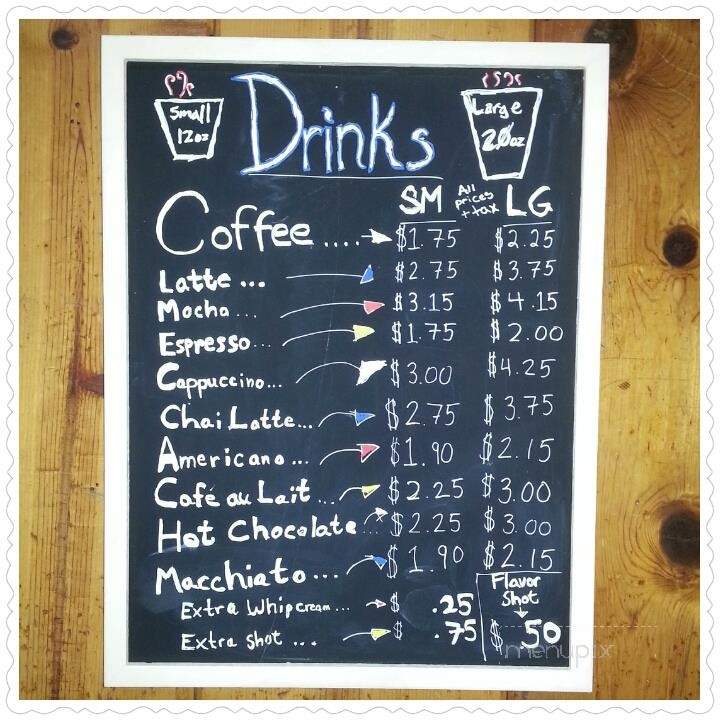 Small
12oz
Drinks
Large
20oz
SM All prices + tax LG
Coffee .... $1.75 $2.25
Latte ... $2.75 $3.75
Mocha ... $3.15 $4.15
Espresso ... $1.75 $2.00
Cappuccino... $3.00 $4.25
Chai Latte... $2.75 $3.75
Americano ... $1.90 $2.15
Café au Lait ... $2.25 $3.00
Hot Chocolate ... $2.25 $3.00
Macchiato ... $1.90 $2.15
Extra Whip cream ... $ .25
Extra Shot ... $ .75
Flavor
Shot
$ .50
menupix